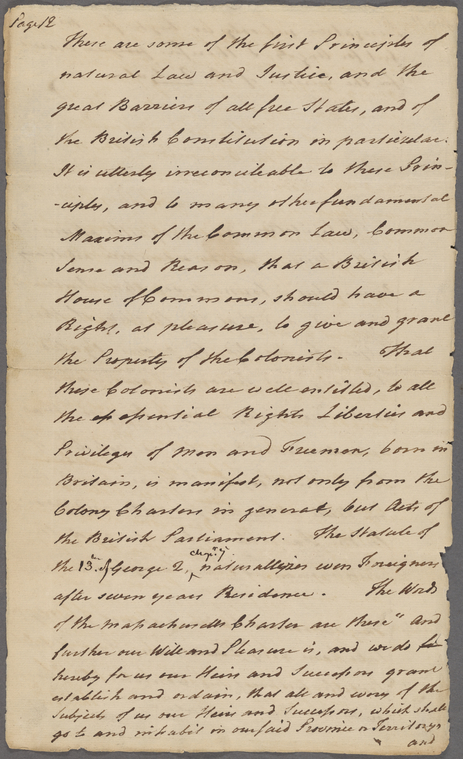 Page 12
These are some of the first Principles of
natural Law and Justice, and the
great Barriers of all free States, and of
the British Constitution in particular.
It is utterly irreconcileable to these Prin-
-ciples, and to many other fundamental
Maxims of the Common Law, Common
Sense and Reason, that a British
House of Commons, should have a
Right, at pleasure, to give and grant
the Property of the Colonists. That
these Colonists are well entitled, to all
the essential Rights Liberties and
Privileges of Men and Freemen, born in
Britain, is manifest, not only from the
Colony Charters in general, but Acts of
the British Parliament. The Statute of
Chapr. 7.
the 13th. of George 2, naturallizes even Foreigners
after seven years Residence. The Words
of the Massachusetts Charter are these "And
further our Will and Pleasure is, and we do
hereby for us our Heirs and Successors grant
establish and ordain, that all and every of the
Subjects of us our Heirs and Successors, which shall
go to and inhabit in our said Province or Territorys
and